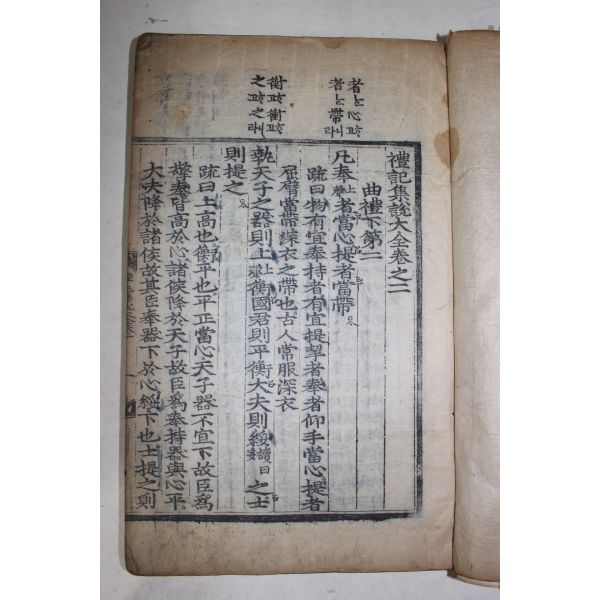 者心
者帶
衡衡
之之
禮記集說大全卷之二
曲禮下第二
凡奉上聲者當心提者當帶
疏曰物有宜奉持者有宜提挈者奉者仰手當心提者
屈臂當帶深衣之帶也古人常服深衣
執天子之器則上上聲衡國君則平衡大夫則綏讀曰妥之士
則提之
疏曰上高也衡平也平正當心天子器不宜下故臣爲
擎奉皆高於心諸侯降於天子故臣爲奉持器與心平
大夫降於諸侯故其臣奉器下於心綏下也士提之則